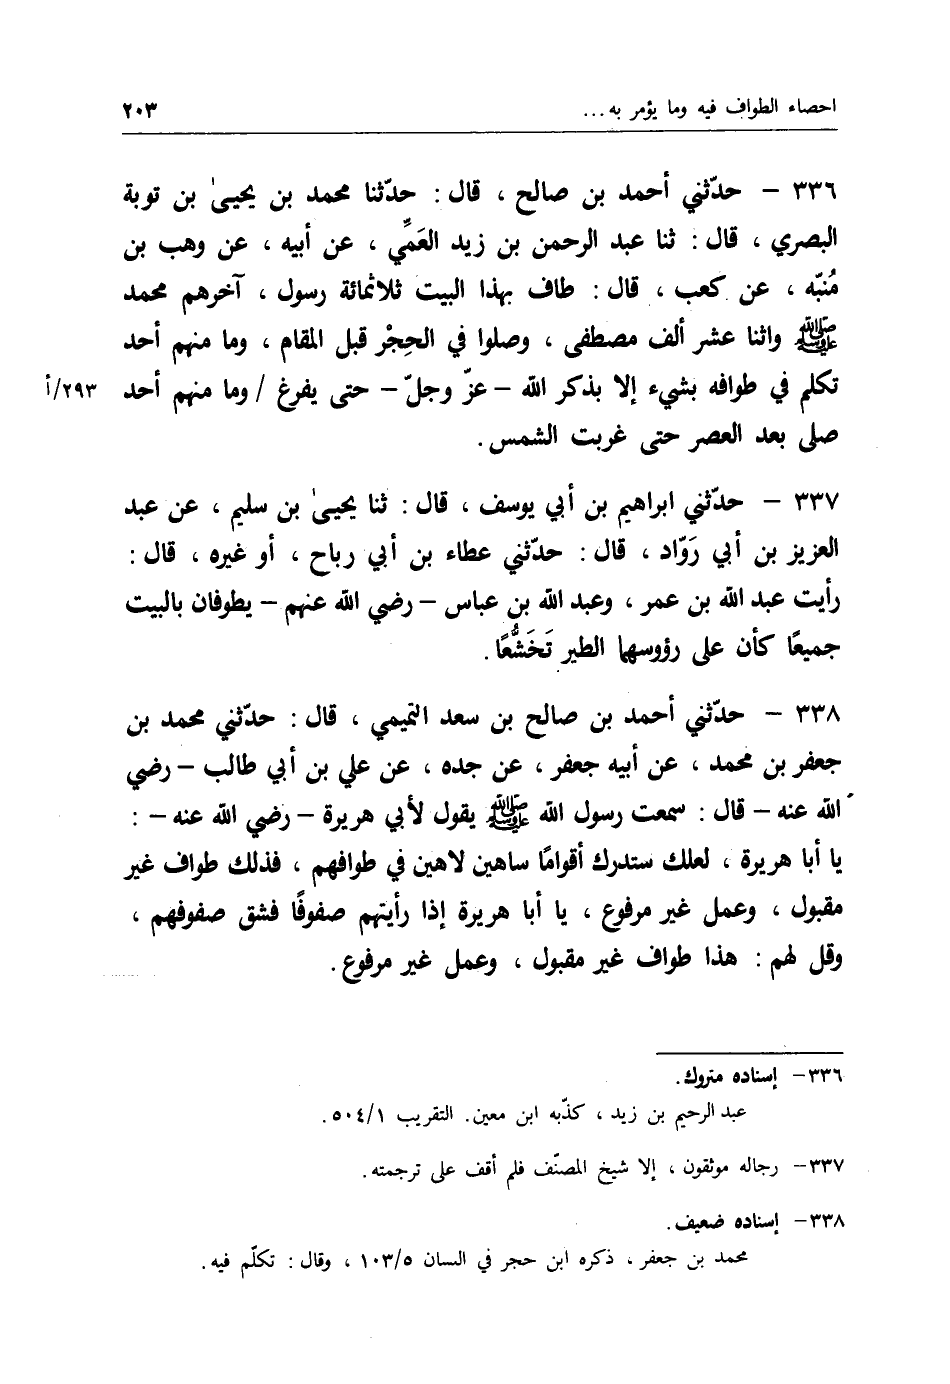 احصاء الطواف فيه وما يؤمر به ... ٢٠٣
٣٣٦ – حدّثني أحمد بن صالح ، قال : حدّثنا محمد بن يحيىٰ بن توبة
البصري ، قال : ثنا عبد الرحمن بن زيد العَمِّي ، عن أبيه ، عن وهب بن
مُنبّه ، عن كعب ، قال : طاف بهذا البيت ثلاثمائة رسول ، آخرهم محمد
ﷺ واثنا عشر ألف مصطفى ، وصلوا في الحِجْر قبل المقام ، وما منهم أحد
تكلم في طوافه بشيء إلا بذكر الله – عزّ وجلّ – حتى يفرغ / وما منهم أحد ٢٩٣/أ
صلى بعد العصر حتى غربت الشمس .
٣٣٧ – حدّثني ابراهيم بن أبي يوسف ، قال : ثنا يحيىٰ بن سليم ، عن عبد
العزيز بن أبي رَوّاد ، قال : حدّثني عطاء بن أبي رباح ، أو غيره ، قال :
رأيت عبد الله بن عمر ، وعبد الله بن عباس – رضي الله عنهم – يطوفان بالبيت
جميعًا كأن على رؤوسها الطير تَخَشُّعًا .
٣٣٨ – حدّثني أحمد بن صالح بن سعد التميمي ، قال : حدّثني محمد بن
جعفر بن محمد ، عن أبيه جعفر ، عن جده ، عن علي بن أبي طالب – رضي
الله عنه – قال : سمعت رسول الله ﷺ يقول لأبي هريرة – رضي الله عنه – :
يا أبا هريرة ، لعلك ستدرك أقوامًا ساهين لاهين في طوافهم ، فذلك طواف غير
مقبول ، وعمل غير مرفوع ، يا أبا هريرة إذا رأيتهم صفوفًا فشق صفوفهم ،
وقل لهم : هذا طواف غير مقبول ، وعمل غير مرفوع .
٣٣٦ – إسناده متروك .
عبد الرحيم بن زيد ، كذّبه ابن معين . التقريب ٥٠٤/١ .
٣٣٧ – رجاله موثقون ، إلا شيخ المصنّف فلم أقف على ترجمته .
٣٣٨ – إسناده ضعيف .
محمد بن جعفر ، ذكره ابن حجر في اللسان ١٠٣/٥ ، وقال : تكلّم فيه .